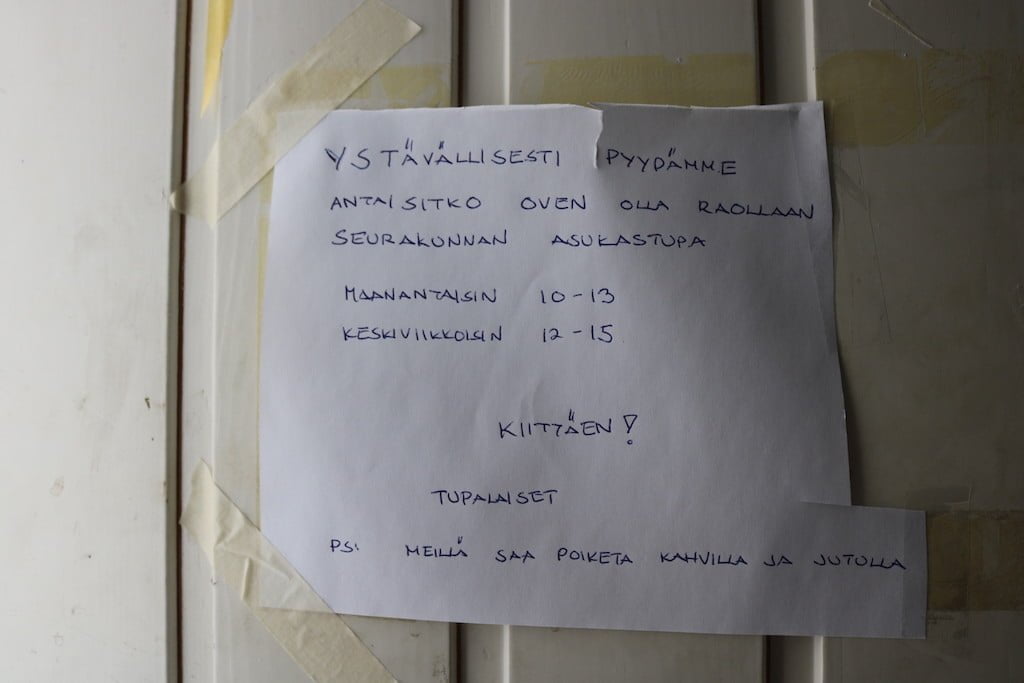 YSTÄVÄLLISESTI PYYDÄMME
ANTAISITKO OVEN OLLA RAOLLAAN
SEURAKUNNAN ASUKASTUPA
MAANANTAISIN 10-13
KESKIVIIKKOISIN 12-15
KIITTÄEN!
TUPALAISET
PS: MEILLÄ SAA POIKETA KAHVILLA JA JUTULLA